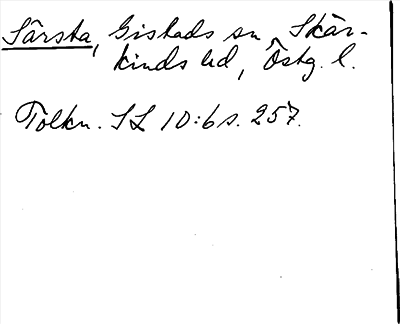 Särsta, Gistads sn, Skär-
kinds hd, Östg. l.
Tolkn. SL 10:6 s. 257.